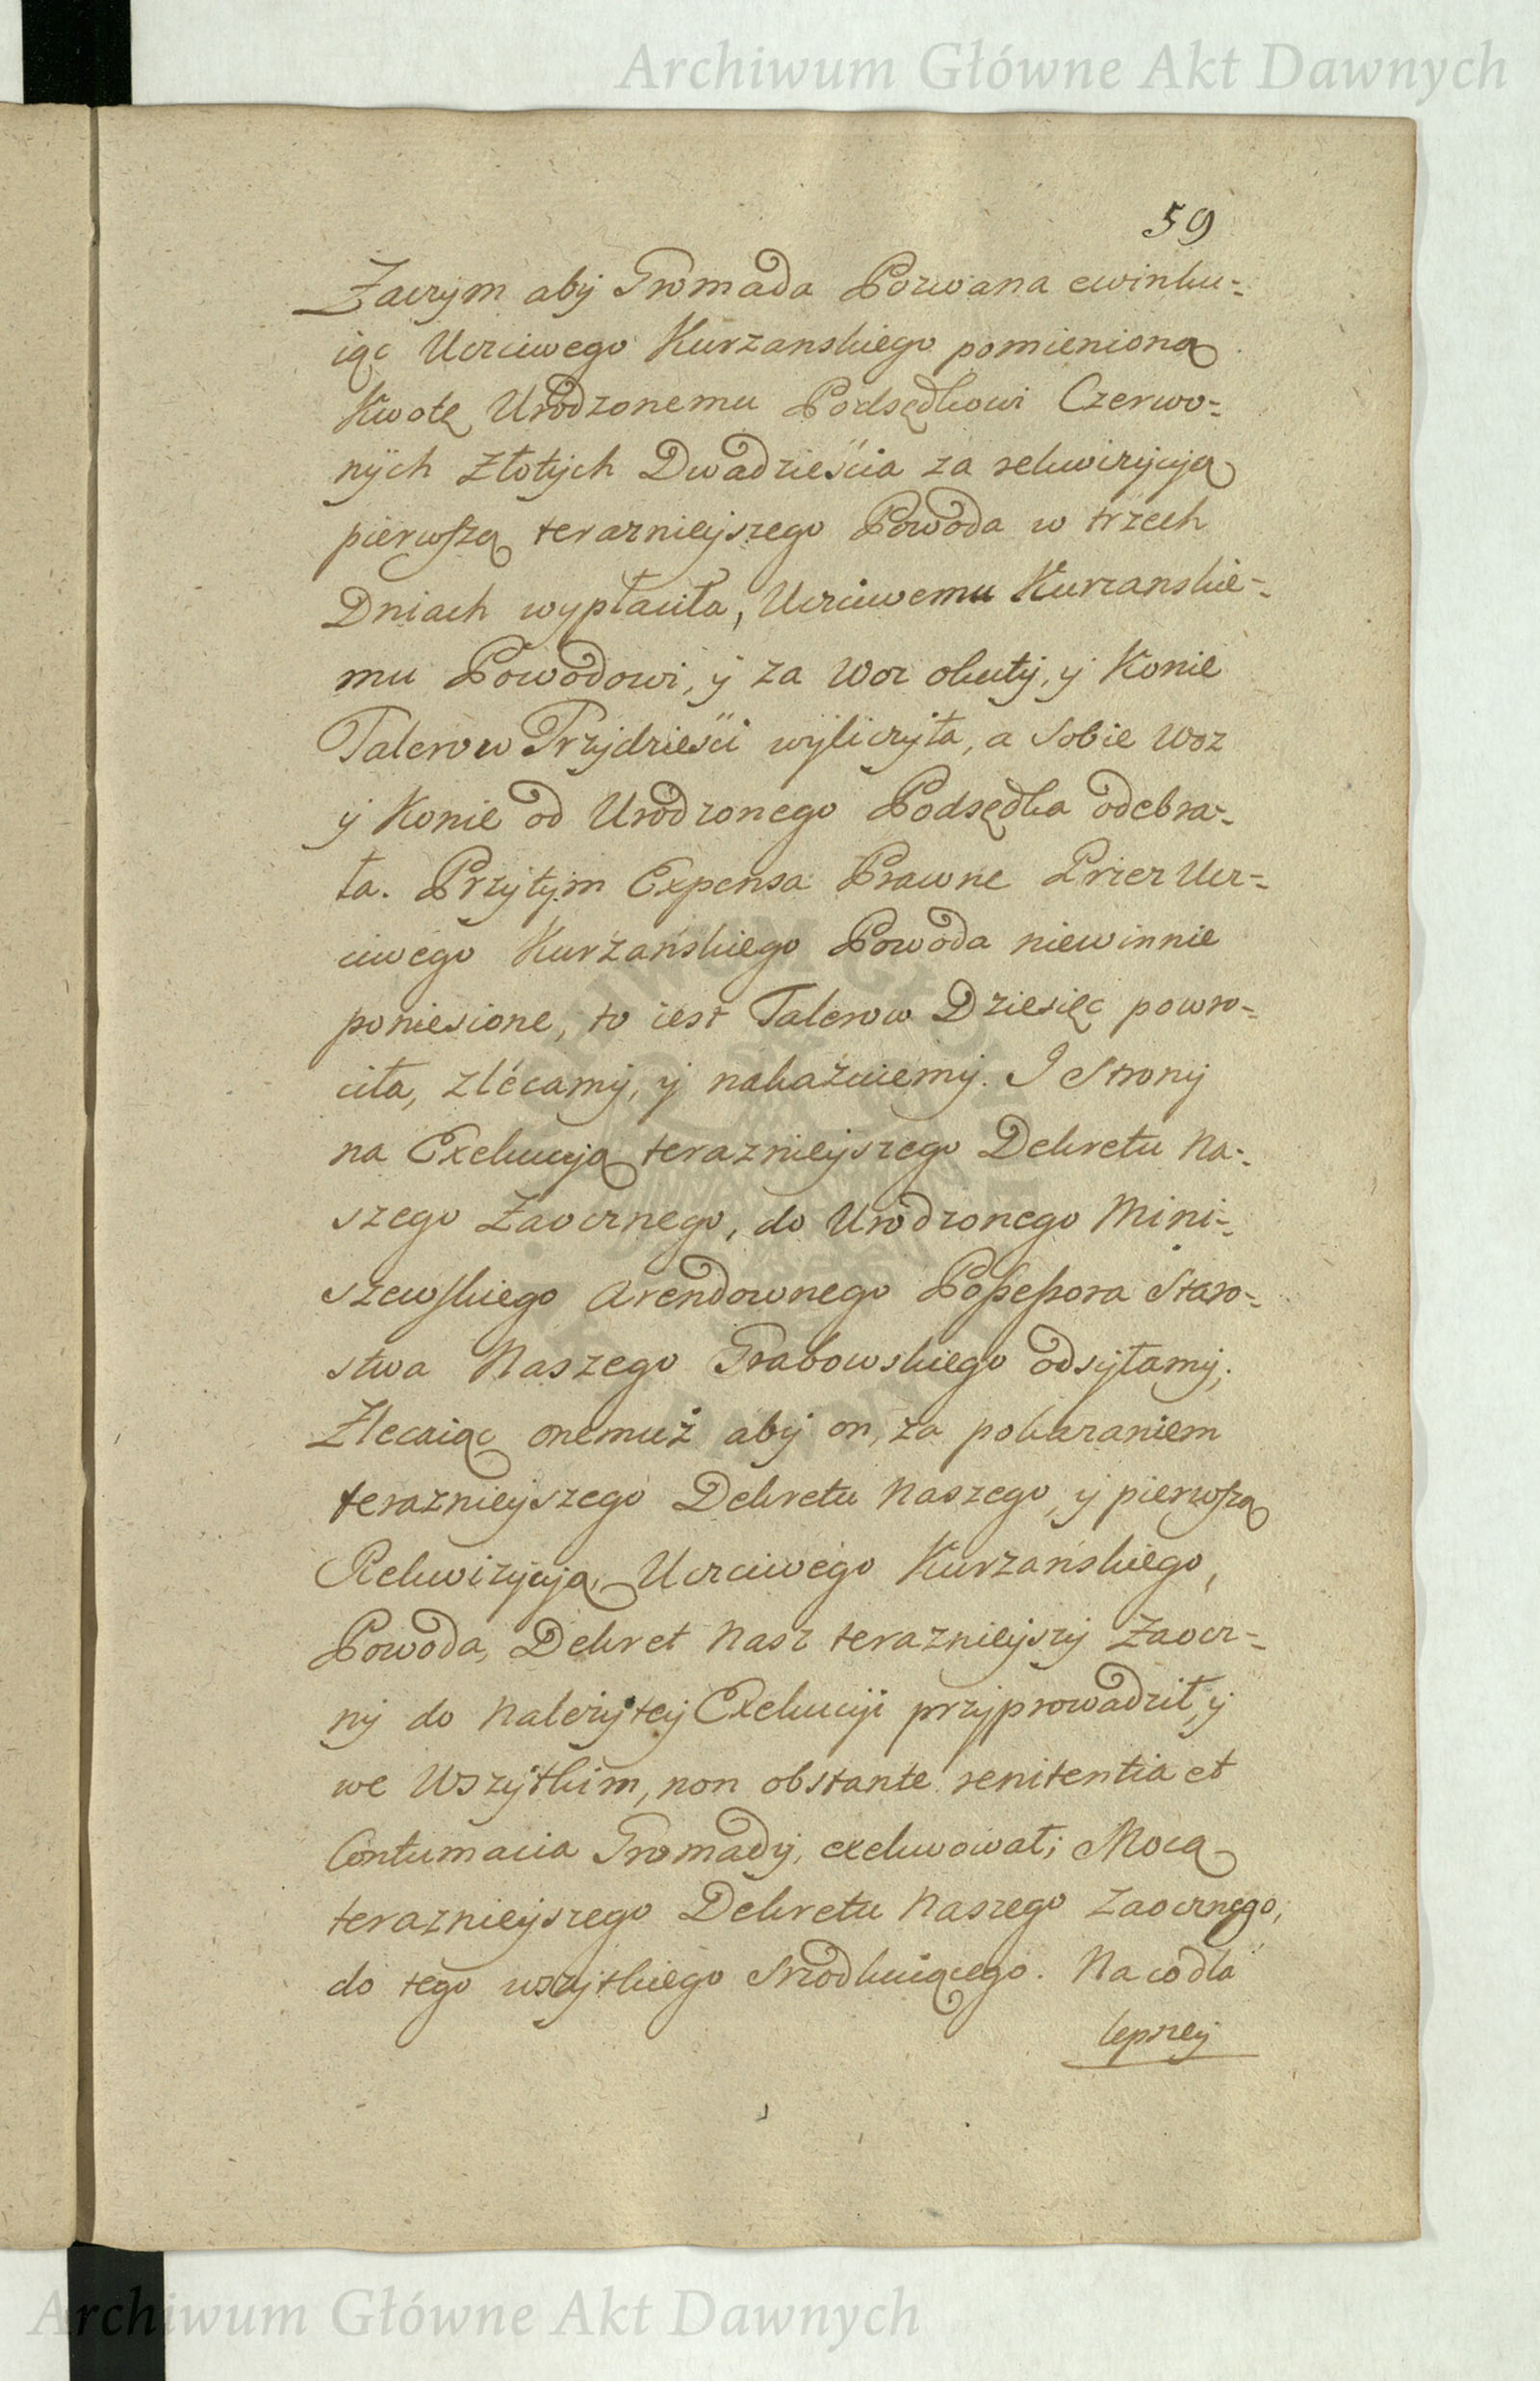 Archiwum Główne Akt Dawnych
59
Zaczym aby Gromada Pozwana ewinku-
iąc Uczciwego Kurzanskiego pomienioną
Kwotę Urodzonemu Podsędkowi Czerwo-
nych Złotych Dwadzieścia za rekwizycyą
pierwszą teraznieyszego Powoda w trzech
Dniach wypłaciła, Uczciwemu Kurzanskie-
mu Powodowi, y za Woz okuty, y Konie
Talerow Trzydzieści wyliczyła, a Sobie Woz
y Konie od Urodzonego Podsędka odebra-
ła. Przytym Expensa Prawne Przez Ucz-
ciwego Kurzańskiego Powoda niewinnie
poniesione, to iest Talerow Dziesięc powro-
ciła, zlécamy, y nakażuiemy. I Strony
na Exekucyą teraznieyszego Dekretu Na-
szego Zaocznego, do Urodzonego Mini-
szewskiego Arendownego Possessora Staro-
stwa Naszego Grabowskiego odsyłamy;
Zlecaiąc onemuż aby on, za pokazaniem
teraznieyszego Dekretu Naszego, y pierwszą
Rekwizycyą, Uczciwégo Kurzańskiego,
Powoda, Dekret Nasz teraznieyszy Zaocz-
ny do Należytey Exekucyi przyprowadził, y
we Wszytkim, non obstante renitentia et
Contumacia Gromady, exekwował; Mocą
teraznieyszego Dekretu Naszego Zaocznego,
do tego wszytkiego Srzodkuiącego. Na co dla
lepszey
Archiwum Główne Akt Dawnych